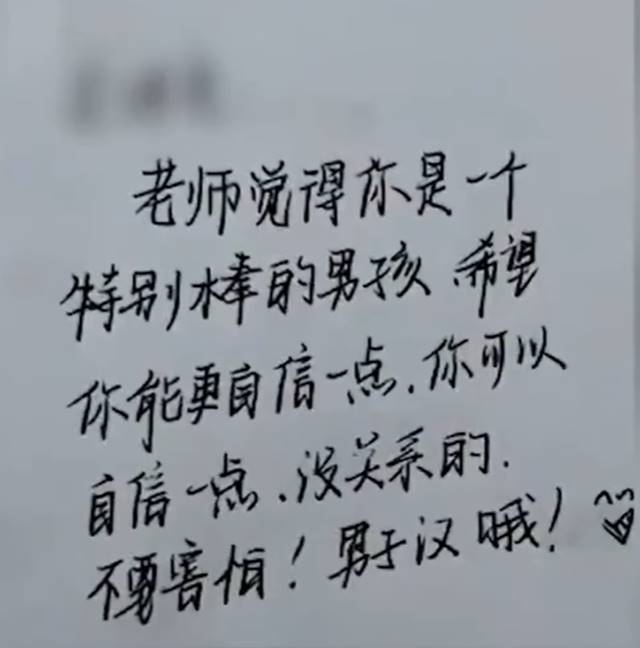 老师觉得你是一个
特别棒的男孩、希望
你能更自信一点.你可以
自信一点、没关系的.
不要害怕！男子汉哦！